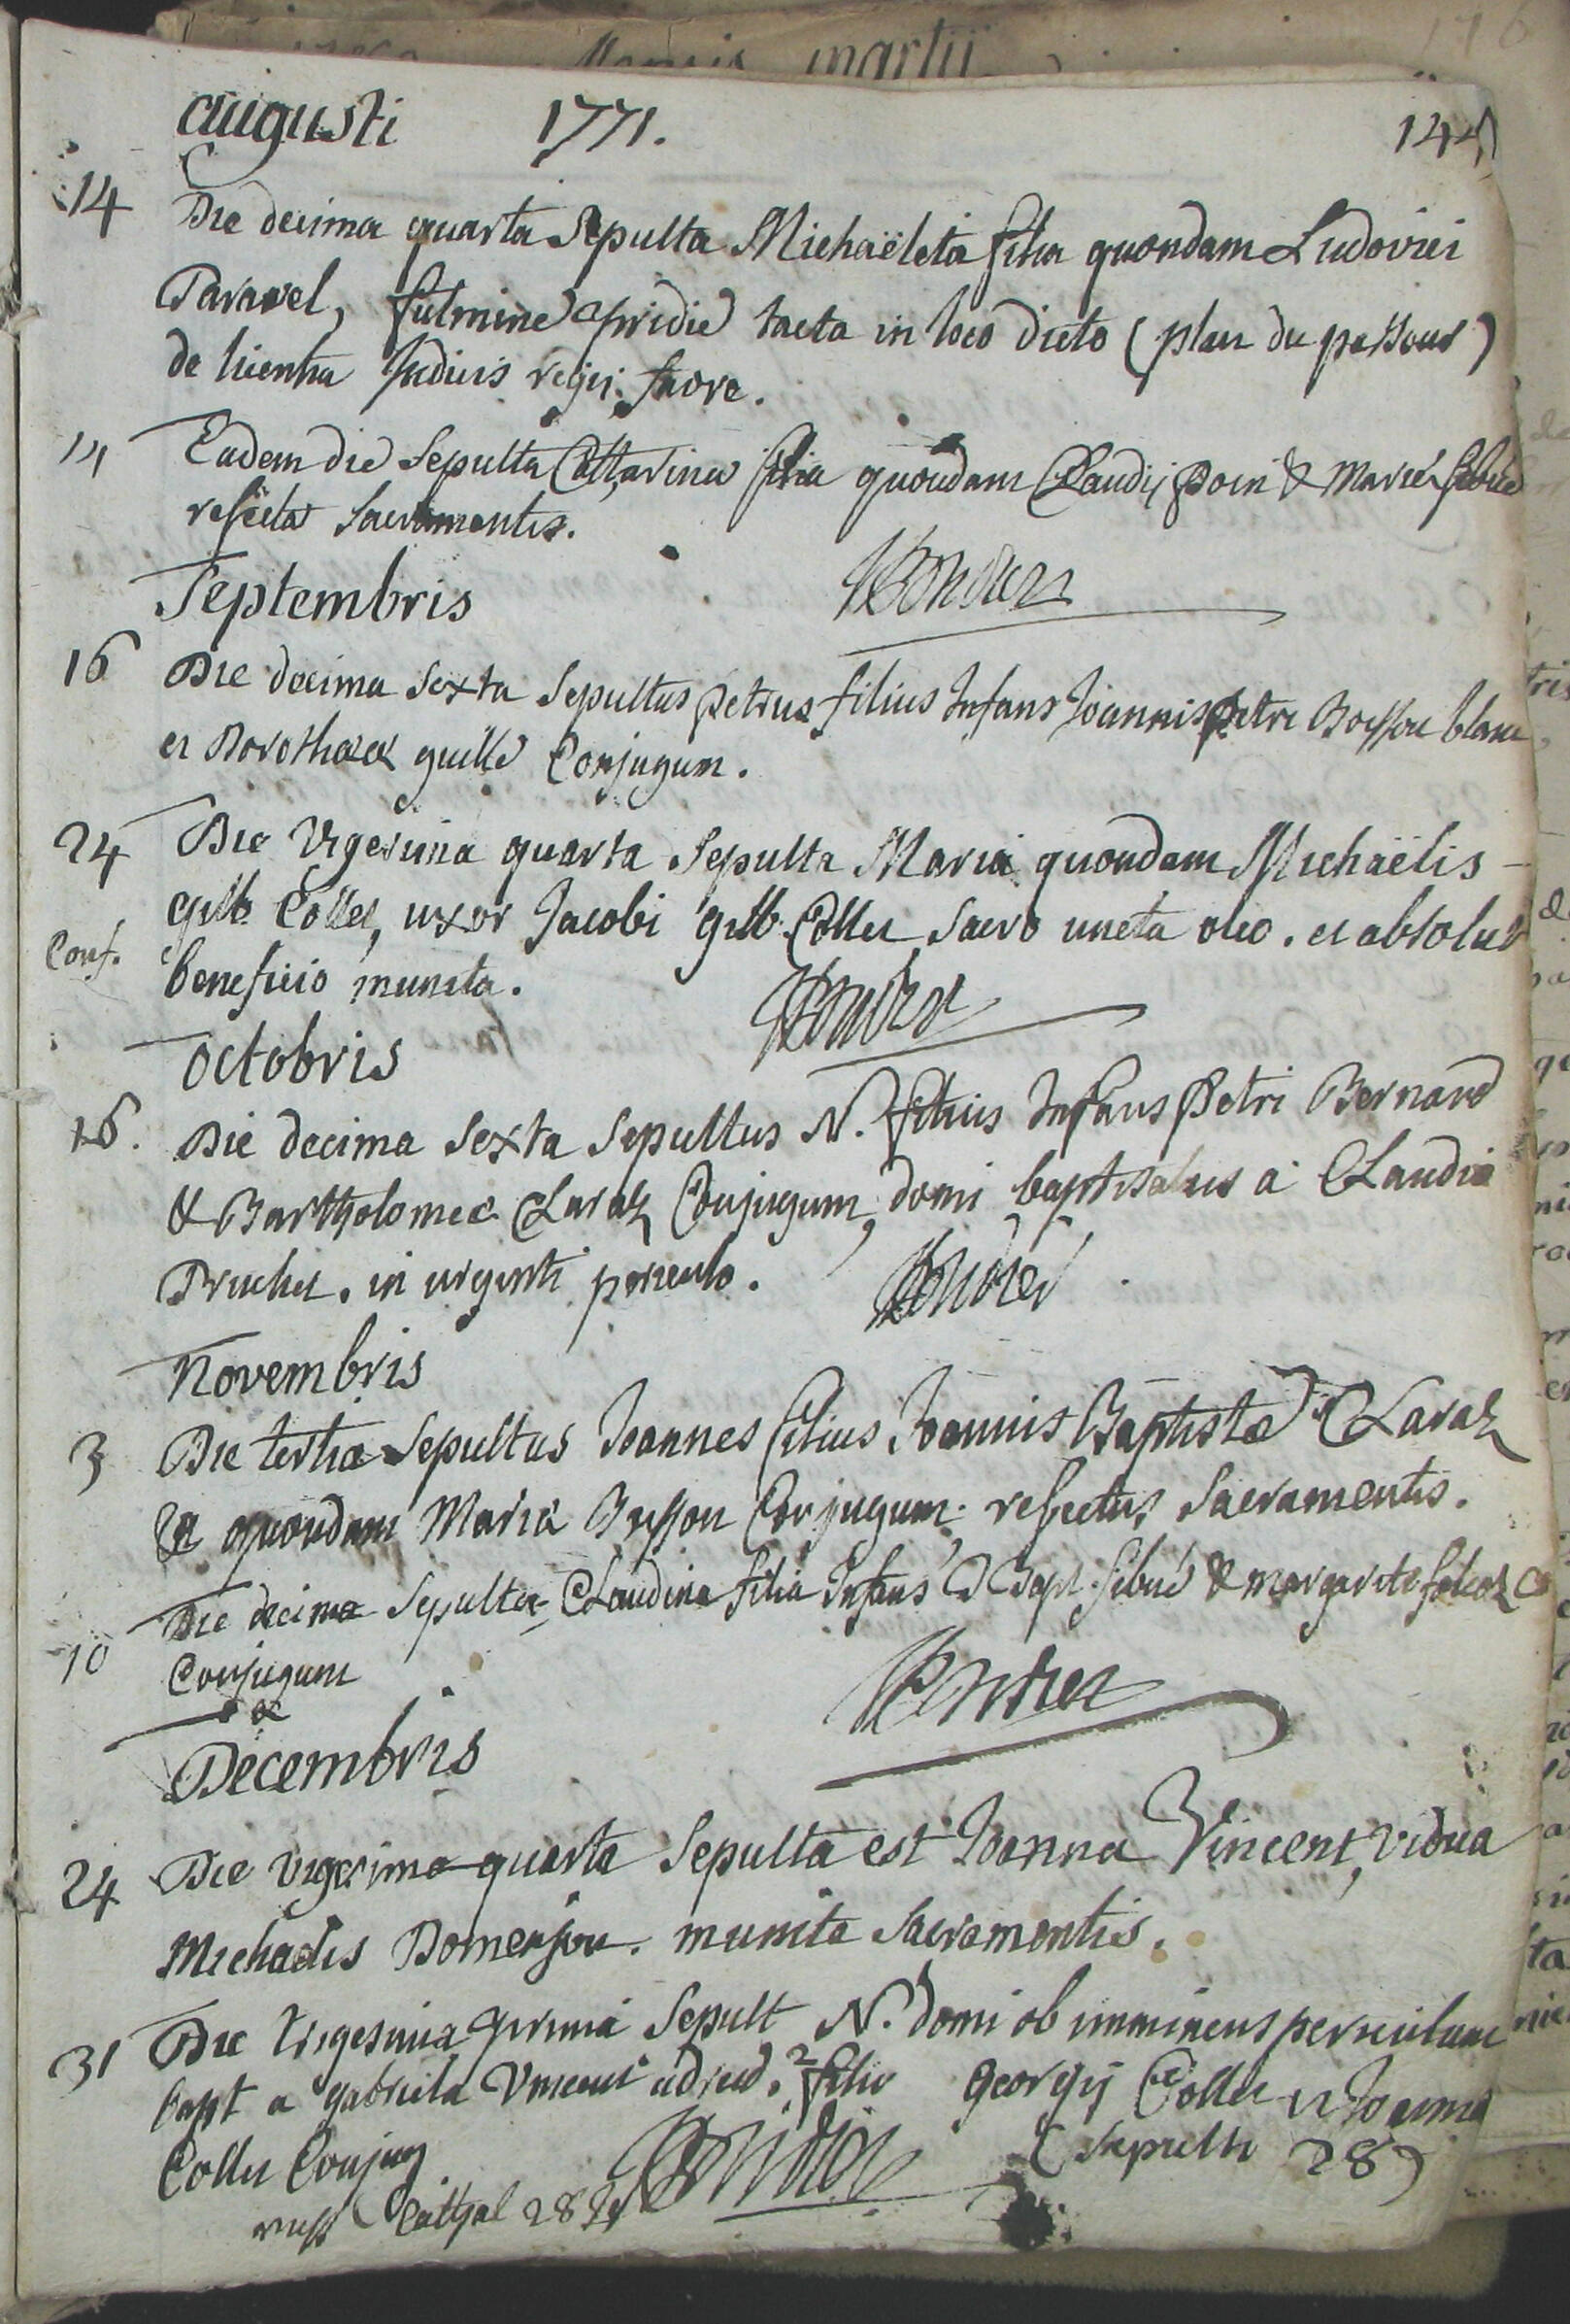 Mensis martii
176
augusti 1771. 144
14 Die decima quarta Sepulta Michaëleta filia quondam Ludovici
Paravel, fulmine pridie tacta in loco dicto (plan du passour)
de licentia Judicis regij. favre.
14 Eadem die Sepulta Catharina filia quondam Claudij Doin & Mariæ sibué
refecta Sacramentis.
Septembris
16 Die decima Sexta Sepultus petrus filius Infans Joannis petri Boisson blanc
et Dorotheæ guille Conjugum.
24 Die Vigesima quarta Sepulta Maria quondam Michaëlis
gilb. Collet, uxor Jacobi gilb. Collet Sacro uncta oleo. et absolut
Conf. beneficio munita.
octobris
16. Die decima Sexta Sepultus N. filius Infans Petri Bernard
& Bartholomeæ Claraz Conjugum, domi baptisatus a Claudia
in urgenti periculo.
Novembris
3 Die tertia Sepultus Joannes filius Joannis Baptistæ Claraz
& quondam Maria Buisson Conjugum. refectus Sacramentis.
10 Die decima Sepulta Claudina filia Infans J Bapt. sibué & margaritæ falcoz
Conjugum
Decembris
24 Die vigesima quarta Sepulta est Joanna Vincent, vidua
Michaelis Domenjon. munita Sacramentis.
31 Die Trigesima prima Sepult N. domi ob imminens periculum
bapt a gabriela Vincent filio georgij Collet et Joanna
Collet Conjug (Sepulti 28)